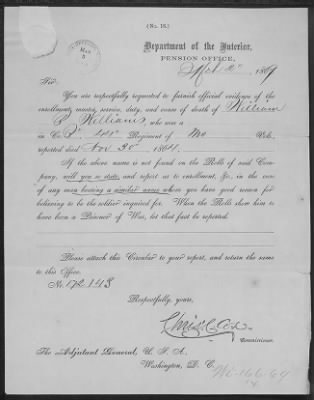 (No. 16.)
Department of the Interior,
PENSION OFFICE,
Mch 2" 1869
Sir:
You are respectfully requested to furnish official evidence of the
enrollment, muster, service, duty, and cause of death of William
Williams, who was a
in Co. Regiment of Mo Vols,
reported died Nov 30" 1864.
If the above name is not found on the Rolls of said Com-
pany, will you so state, and report as to enrollment, &c., in the case
of any man bearing a similar name whom you have good reason for
believing to be the soldier inquired for. When the Rolls show him to
have been a Prisoner of War, let that fact be reported.
Please attach this Circular to your report, and return the same
to this Office.
No. 172.143
Respectfully, yours,
Chris. C. Cox.
Commissioner.
The Adjutant General, U. S. A.
Washington, D. C.